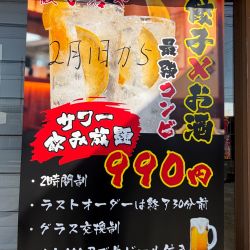 餃子×お酒
最強コンビ
2月1日から
サワー
飲み放題
990円
・2時間制
・ラストオーダーは終了30分前
・グラス交換制